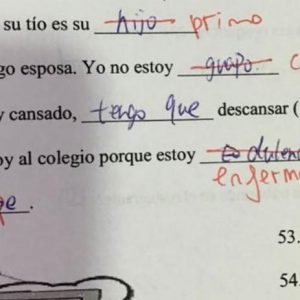 su tío es su hijo primo
go esposa. Yo no estoy guapo. c
y cansado, tengo que descansar (
oy al colegio porque estoy
enferm
e.
53.
54